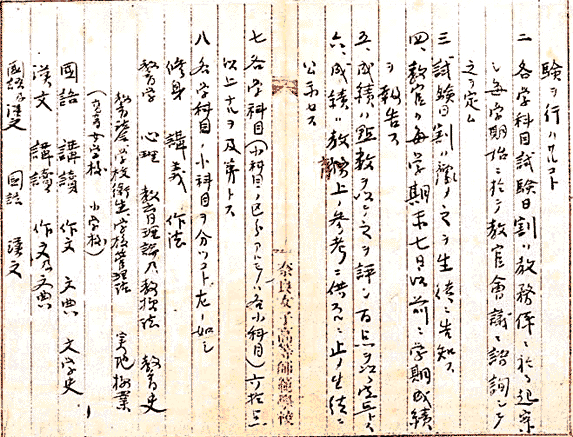 験ヲ行ハサルコト
二、各学科目試験日割ハ教務係ニ於テ起案
シ毎学期始ニ於テ教官会議ニ諮詢シテ
之ヲ定ム
三、試験日割ハ予メ之ヲ生徒ニ告知ス
四、教官ハ毎学期末七日以前ニ学期成績
ヲ報告ス
五、成績ハ点数ヲ以テ之ヲ評シ百点ヲ以テ定点トス
六、成績ハ教務上ノ参考ニ供スルニ止メ生徒ニ
公示セス
奈良女子高等師範學校
七、各学科目(小科目ノ区分アルモノハ各小科目)六拾点
以上ナルヲ及第トス
八、各学科目ノ小科目ヲ分ツコト左ノ如シ
修身 講義 作法
教育学 心理 教育理論及教授法 教育史
学校衛生 学校管理法 実地授業
(高等女学校 小学校)
国語 講読 作文 文典 文学史
漢文 講読 作文及文典
国語漢文 国語 漢文